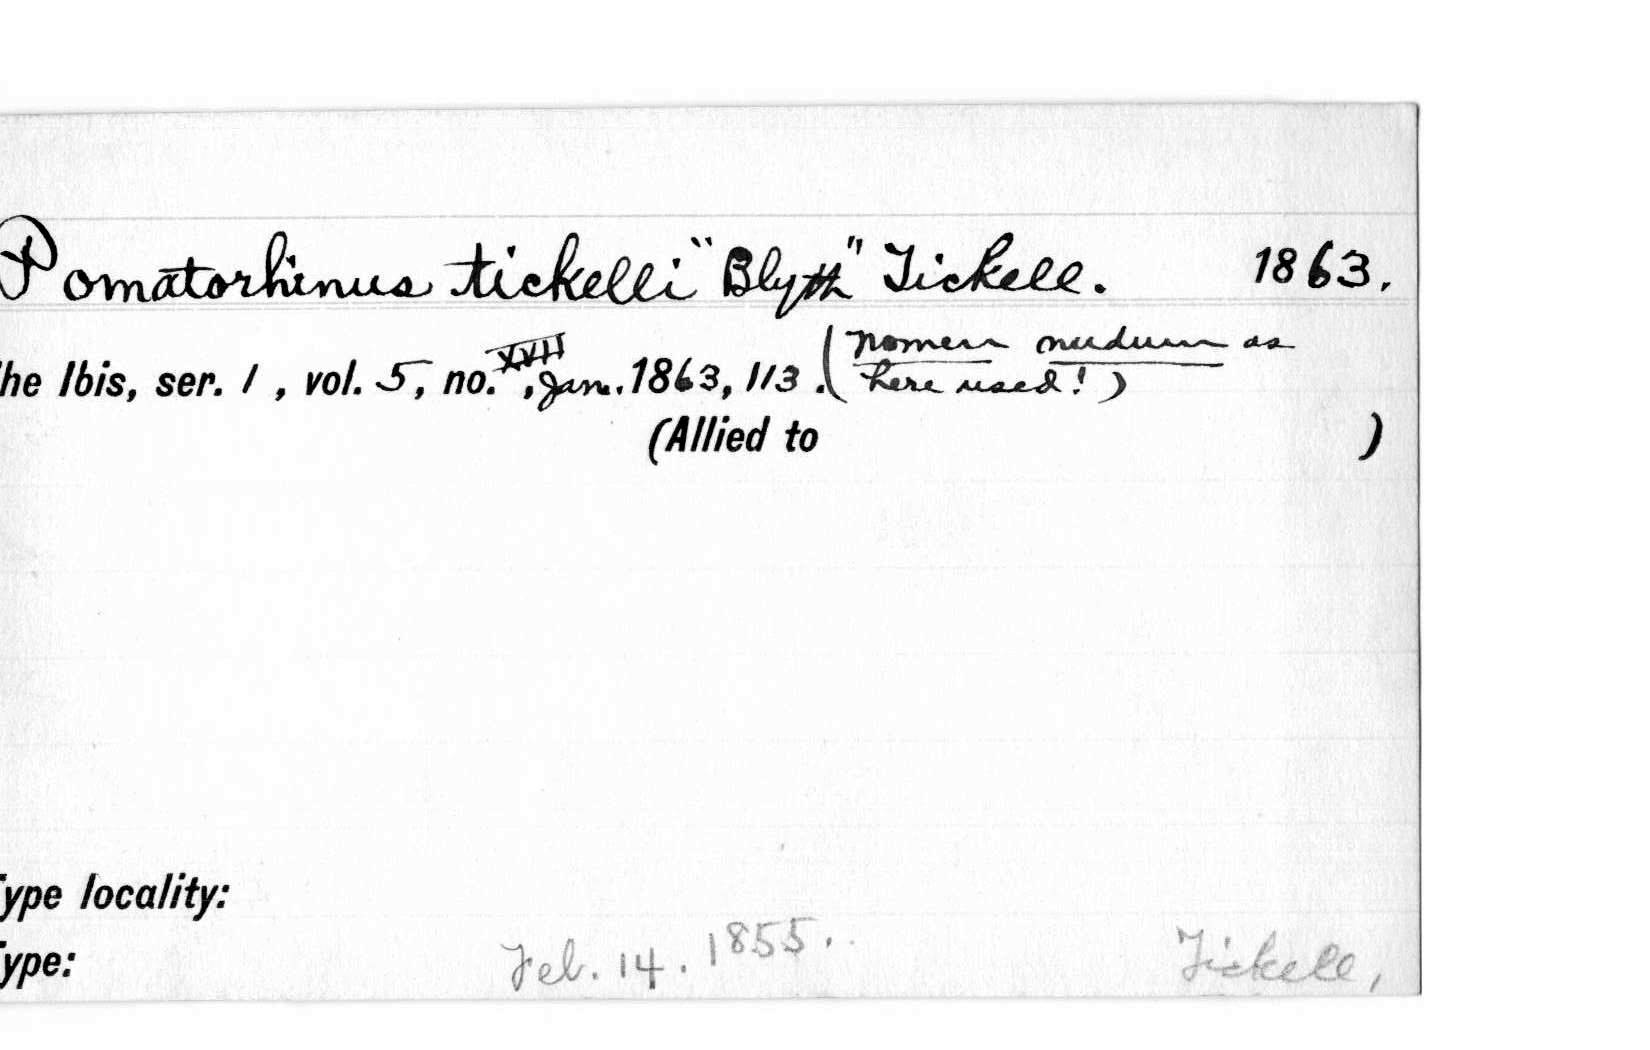 Pomatorhinus tickelli "Blyth" Tickell. 1863.
he Ibis, ser. 1, vol. 5, no. XVII, Jan. 1863, 113. (nomen nudum as here used!)
(Allied to )
Type locality:
Type:
Feb. 14. 1855. Tickell,